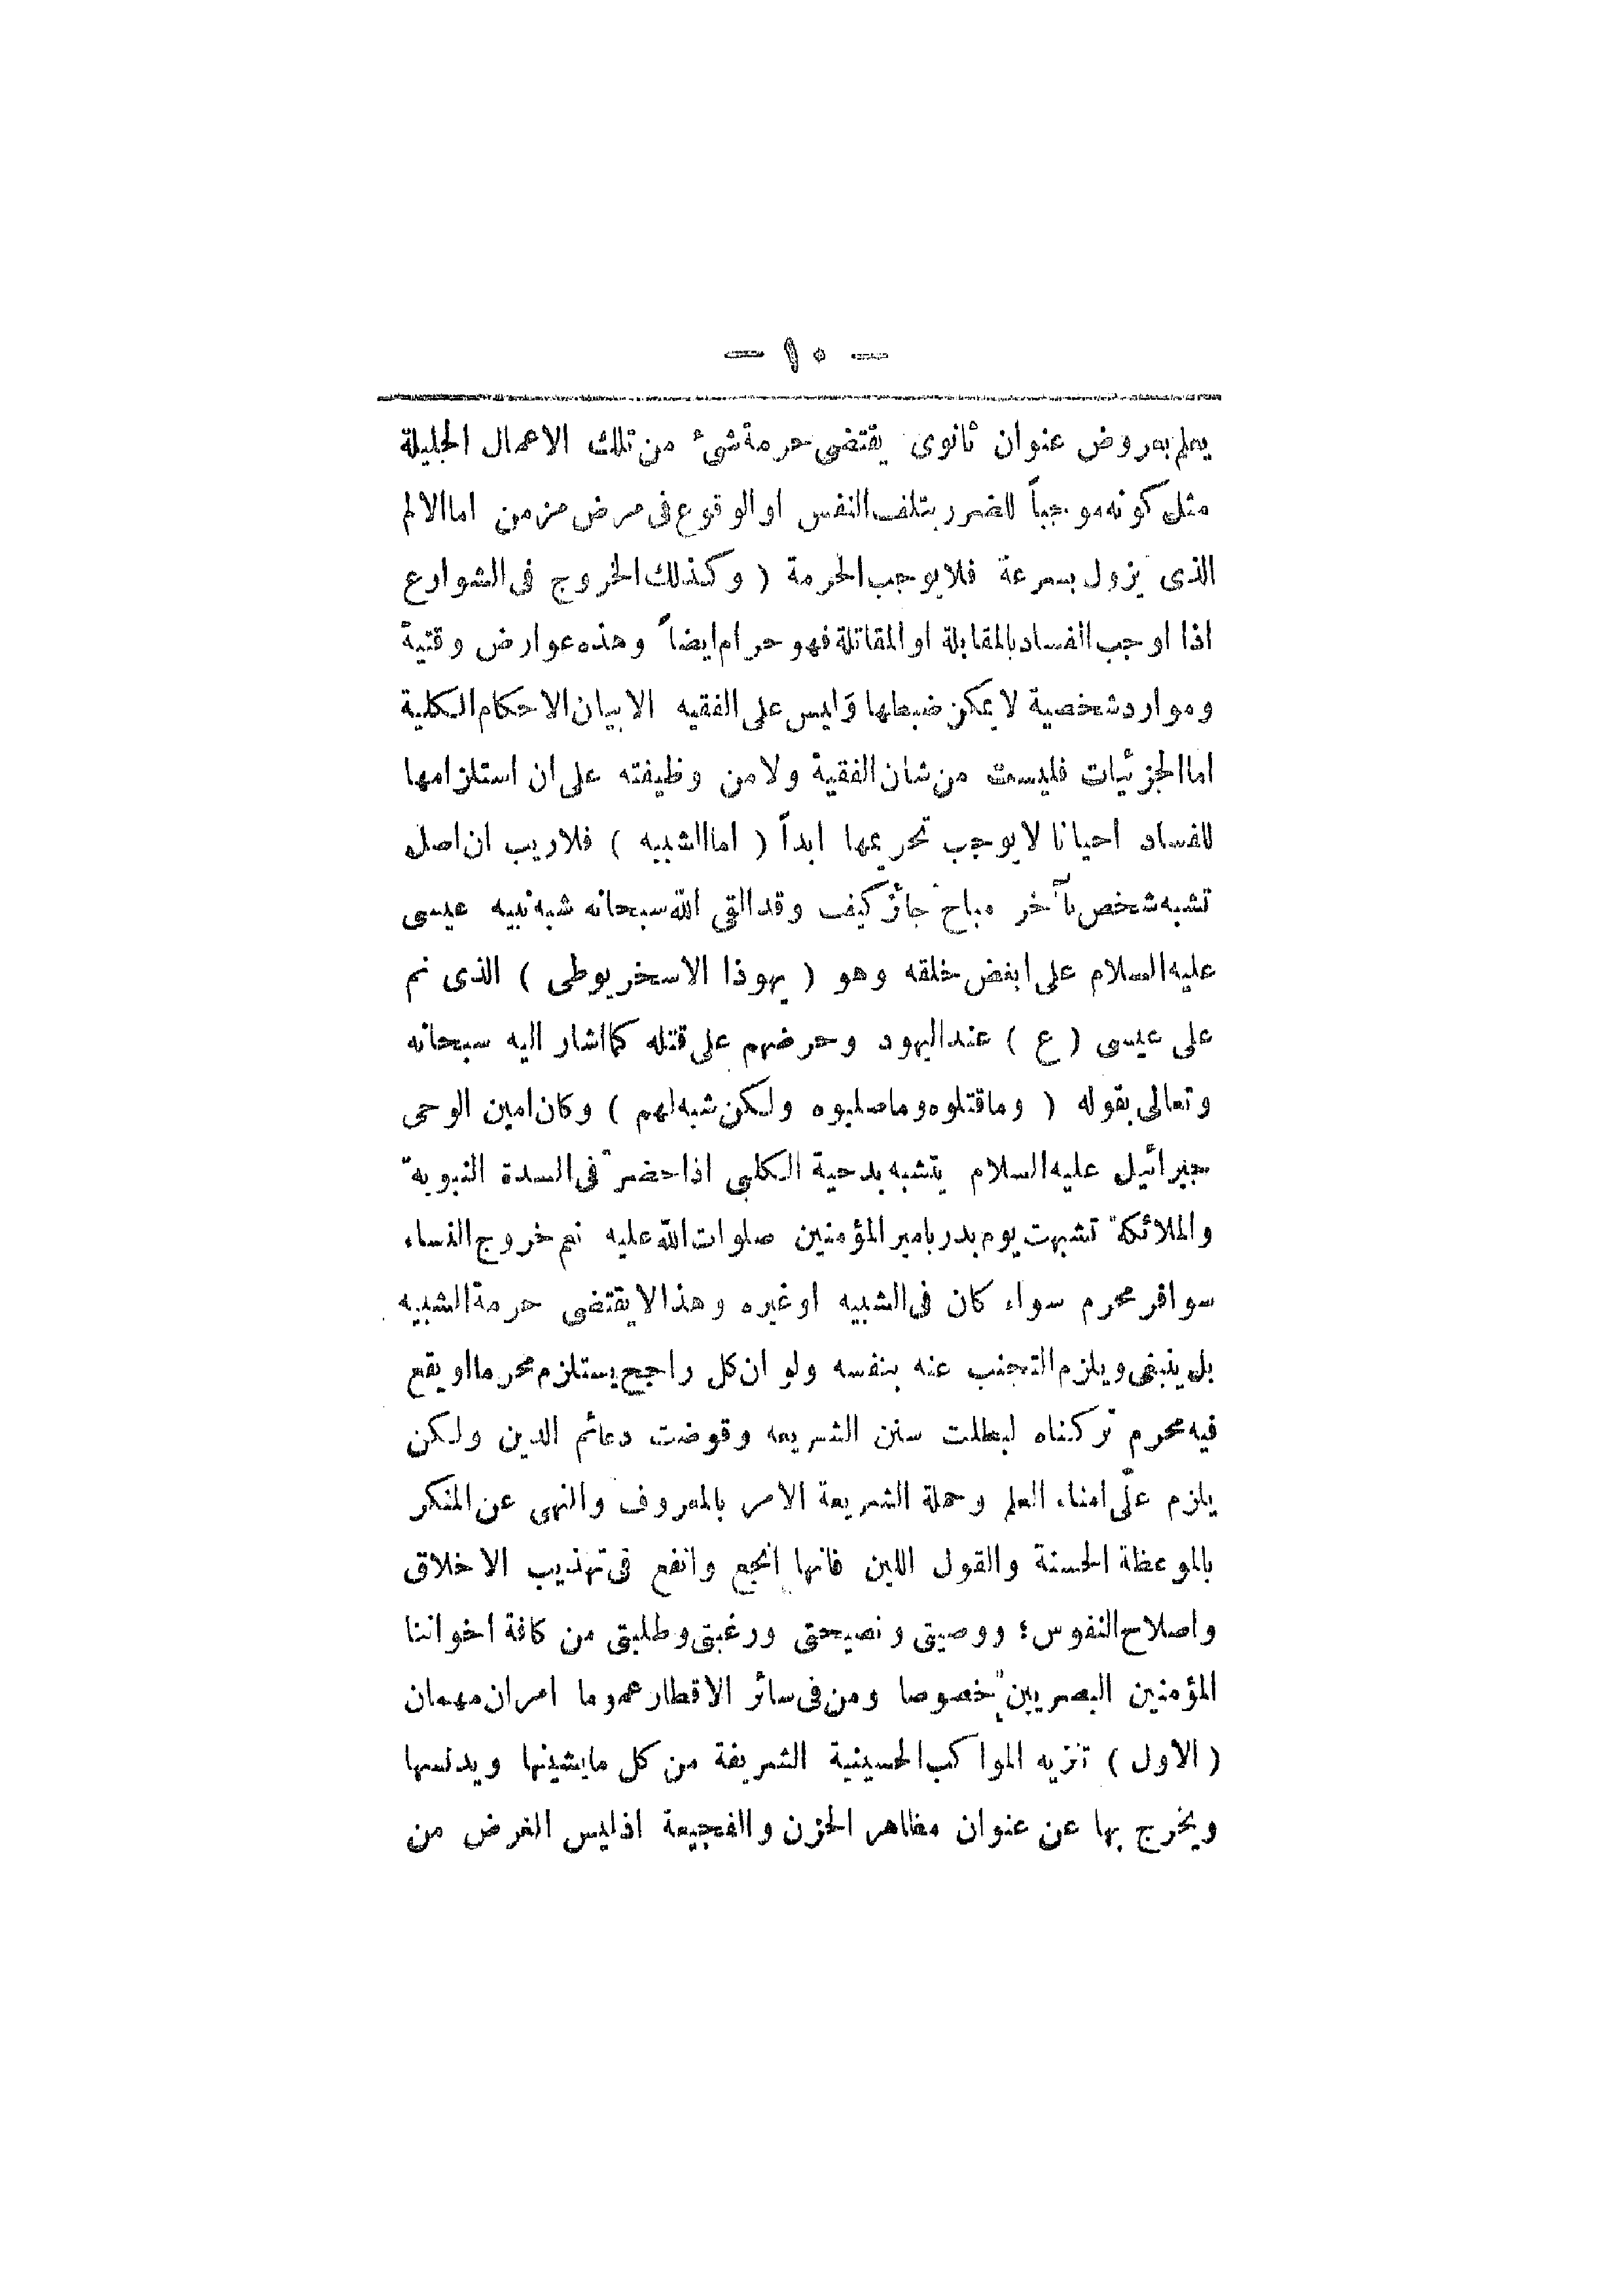 — ١٠ —
يعلم بعروض عنوان ثانوى يقتضى حرمة شئ من تلك الاعمال الجليلة
مثل كونه موجباً للضرر بتلف النفس او الوقوع فى مرض مزمن اما الالم
الذى يزول بسرعة فلا يوجب الحرمة ( وكذلك الخروج فى الشوارع
اذا اوجب الفساد بالمقابلة او المقاتلة فهو حرام ايضاً وهذه عوارض وقتية
وموارد شخصية لا يمكن ضبطها وليس على الفقيه الا بيان الاحكام الكلية
اما الجزئيات فليست من شان الفقية ولا من وظيفته على ان استلزامها
للفساد احيانا لا يوجب تحريمها ابداً ( اما الشبيه ) فلا ريب ان اصل
تشبه شخص بآخر مباح جائز كيف وقد القى الله سبحانه شبه نبيه عيسى
عليه السلام على ابغض خلقه وهو ( يهوذا الاسخريوطى ) الذى نم
على عيسى ( ع ) عند اليهود وحرضهم على قتله كما اشار اليه سبحانه
وتعالى بقوله ( وما قتلوه وما صلبوه ولكن شبه لهم ) وكان امين الوحى
جبرائيل عليه السلام يتشبه بدحية الكلبى اذا حضر فى السدة النبوية
والملائكة تشبهت يوم بدر بامير المؤمنين صلوات الله عليه نعم خروج النساء
سوافر محرم سواء كان فى الشبيه او غيره وهذا لا يقتضى حرمة الشبيه
بل ينبغى ويلزم التجنب عنه بنفسه ولو ان كل راجح يستلزم محرما او يقع
فيه محرم تركناه لبطلت سنن الشريعه وقوضت دعائم الدين ولكن
يلزم على امناء العلم وحملة الشريعة الامر بالمعروف والنهى عن المنكر
بالموعظة الحسنة والقول اللين فانها انجع وانفع فى تهذيب الاخلاق
واصلاح النفوس؛ ووصيتى ونصيحتى ورغبتى وطلبتى من كافة اخواننا
المؤمنين البصريين خصوصا ومن فى سائر الاقطار عموما امران مهمان
( الاول ) تنزيه المواكب الحسينية الشريفة من كل ما يشينها ويدنسها
ويخرج بها عن عنوان مظاهر الحزن والفجيعة اذ ليس الغرض من